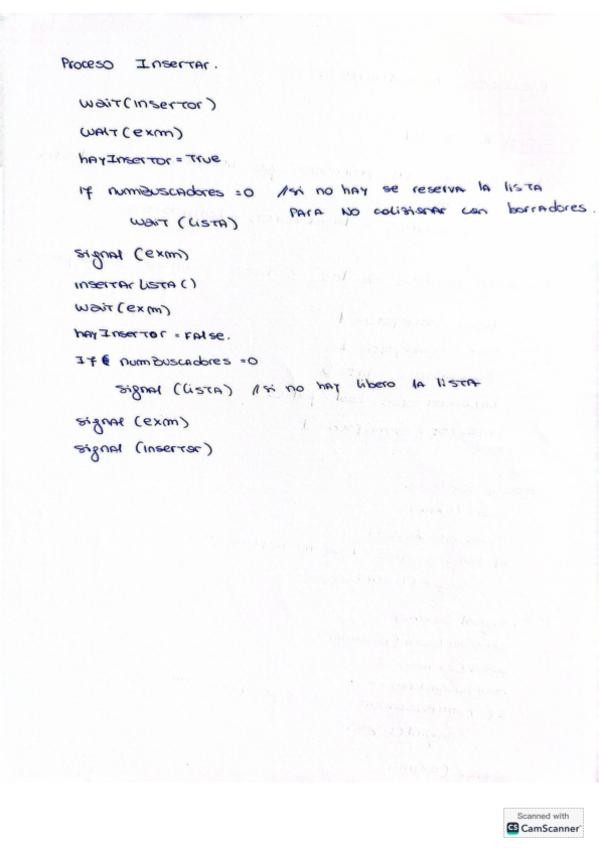 Proceso Insertar.
wait(insertor)
wait(exm)
hayInsertor = True.
If numBuscadores = 0 //si no hay se reserva la lista
para no colisionar con borradores.
wait (lista)
signal (exm)
insertarLista()
wait(exm)
hayInsertor = False.
If numBuscadores = 0
signal (lista) //si no hay libero la lista
signal (exm)
signal (insertor)
Scanned with
CS CamScanner